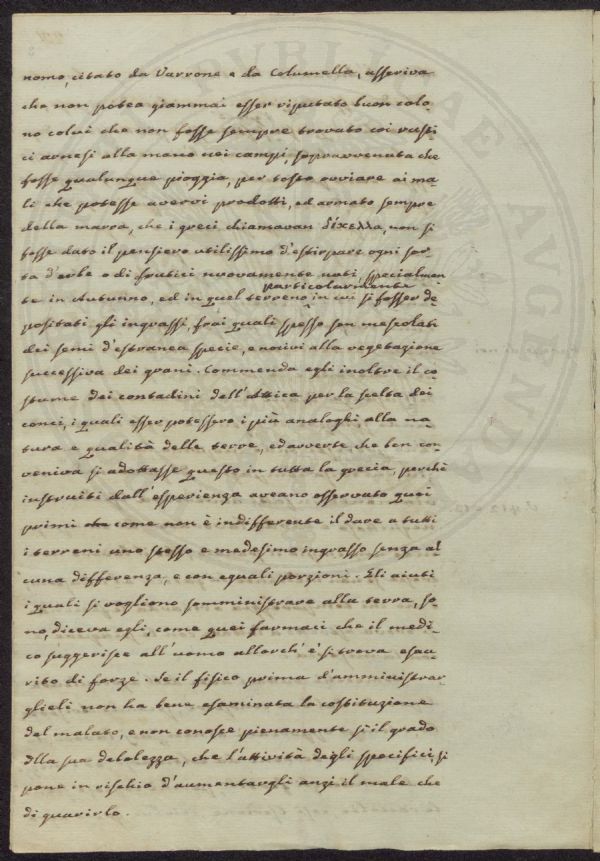 nomo, citato da Varrone e da Columella, asseriva
che non potea giammai esser riputato buon colo
no colui che non fosse sempre trovato coi rusti
ci arnesi alla mano nei campi, sopravvenuta che
fosse qualunque pioggia, per tosto ovviare ai ma-
li che potesse avervi prodotti, ed armato sempre
della marra, che i greci chiamavan δίκελλα, non si
fosse dato il pensiero utilissimo d'estirpare ogni sor-
ta d'erbe o di frutici nuovamente nati, specialmen
particolarmente
te in Autunno, ed in quel terreno in cui si fosser de
positati gli ingrassi, frai quali spesso son mescolati
dei semi d'estranea specie, e nocivi alla vegetazione
successiva dei grani. Commenda egli inoltre il co
stume dei contadini dell'Attica per la scelta dei
conci, i quali esser potessero i più analoghi alla na
tura e qualità delle terre, ed avverte che ben con
veniva si adottasse questo in tutta la grecia, perchè
instruiti dall'esperienza aveano osservato quei
primi come non è indifferente il dare a tutti
i terreni uno stesso e medesimo ingrasso senza al
cuna differenza, e con eguali porzioni. Gli aiuti
i quali si vogliono somministrare alla terra, so-
no, diceva egli, come quei farmaci che il medi-
co suggerisce all'uomo allorch' è si trova esau-
rito di forze. Se il fisico prima d'amministrar
glieli non ha bene esaminata la costituzione
del malato, e non conosce pienamente sì il grado
dlla sua debolezza, che l'attività degli specifici, si
pone in rischio d'aumentargli anzi il male che
di guarirlo.